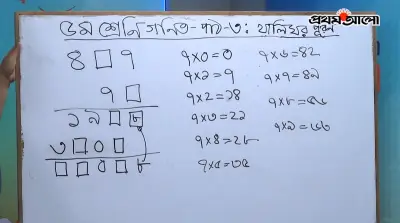 ৫ম শ্রেনি গনিত-পাঠ-৩: খালিঘর পূরণ
প্রথম আলো
৪ □ ৭
৭ □
২৯ □ ৮
৩ □ ০ □
□ □ ০ □ ৮
৭×০=০
৭×১=৭
৭×২=১৪
৭×৩=২১
৭×৪=২৮
৭×৫=৩৫
৭×৬=৪২
৭×৭=৪৯
৭×৮=৫৬
৭×৯=৬৩